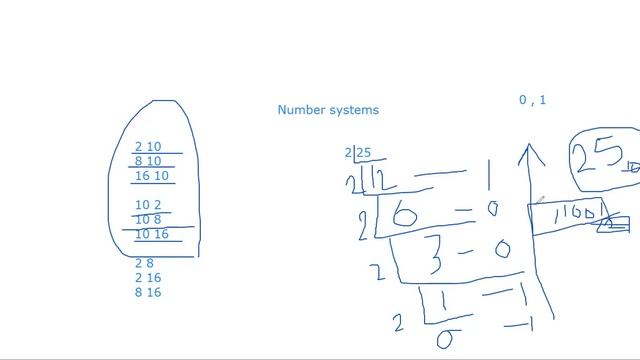 0 , 1
Number systems
2 10
8 10
16 10
10 2
10 8
10 16
2 8
2 16
8 16
2 25
2 12 — 1
2 6 - 0
2 3 - 0
2 1 — 1
0 - 1
25 10
11001 2